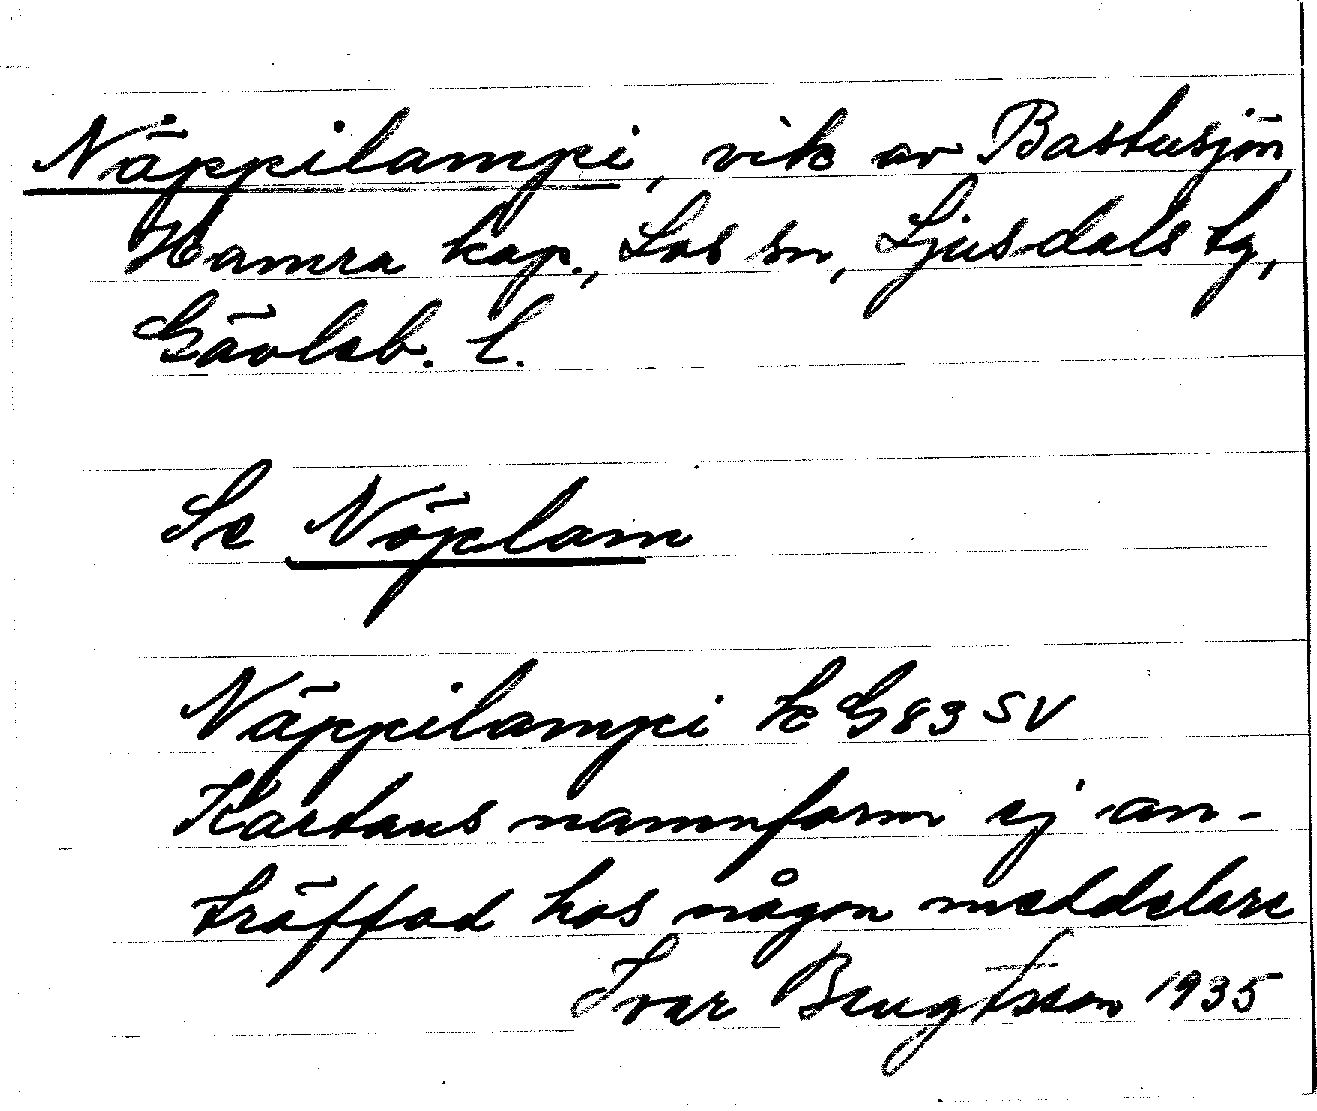 Näppilampi, vik av Bastusjön,
Hamra kap., Los sn, Ljusdals tg,
Gävleb. l.
Se Nöplam
Näppilampi k G 83 SV
Kartans namnform ej an-
träffad hos någon meddelare
Ivar Bengtsson 1935